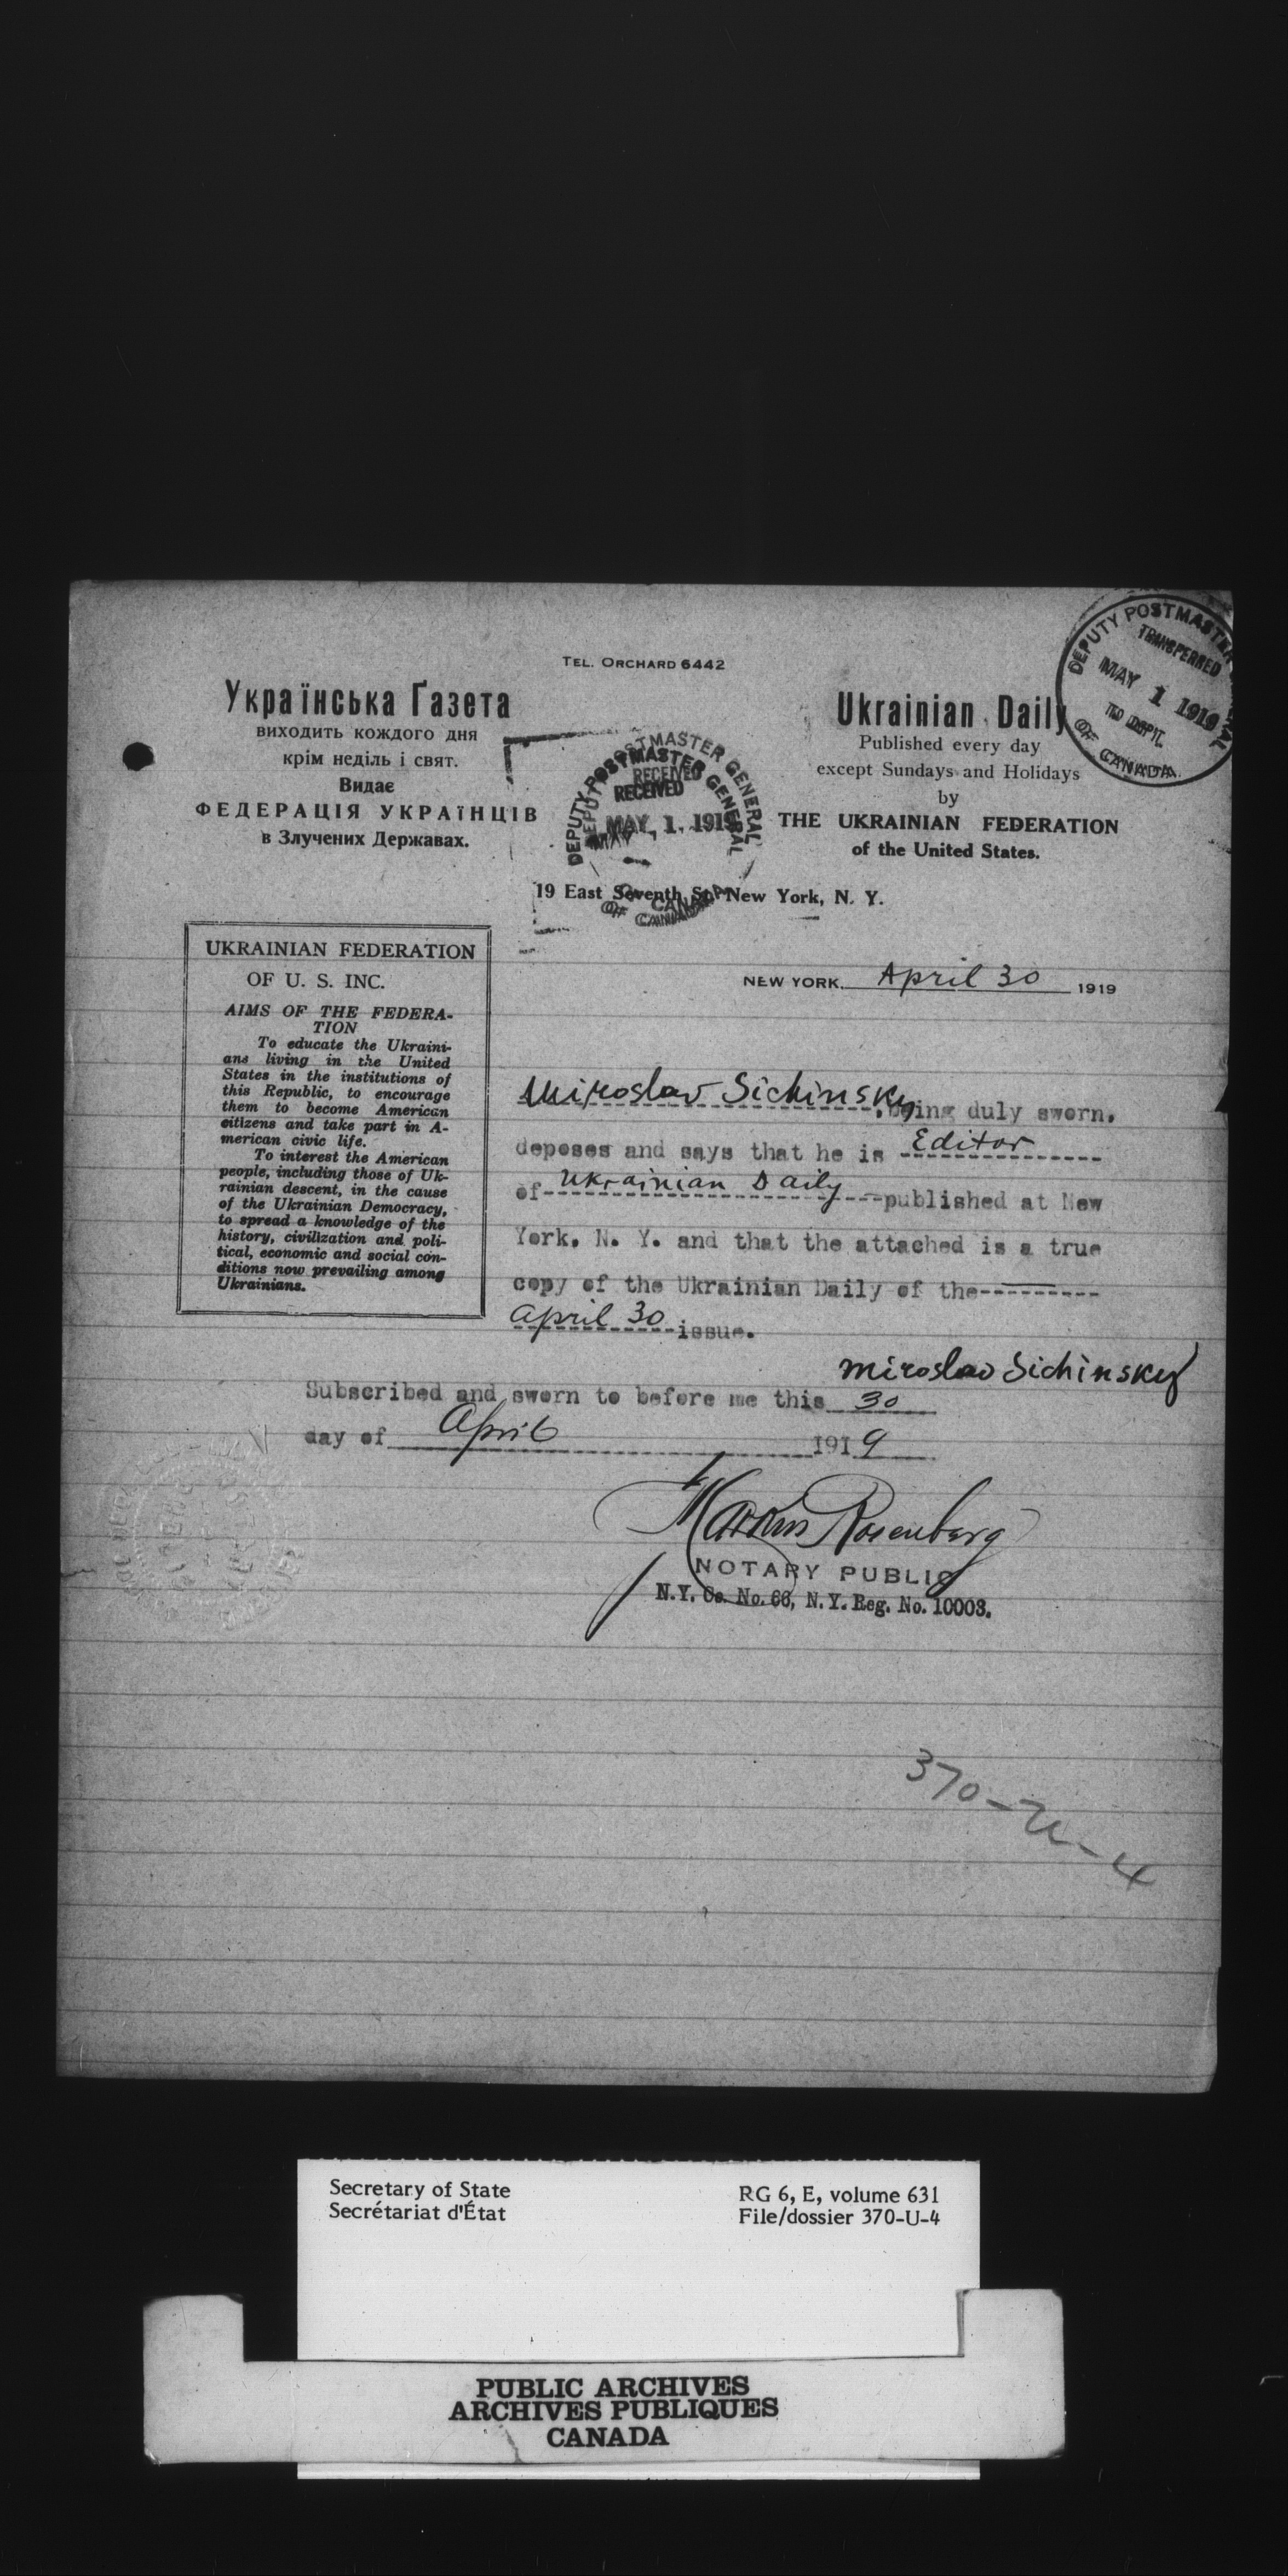 TEL. ORCHARD 6442
Українська Ґазета
виходить кождого дня
крім неділь і свят.
Видає
ФЕДЕРАЦІЯ УКРАЇНЦІВ
в Злучених Державах.
Ukrainian Daily
Published every day
except Sundays and Holidays
by
THE UKRAINIAN FEDERATION
of the United States.
DEPUTY POSTMASTER GENERAL
TRANSFERRED
MAY 1 1919
TO DEPT.
OF CANADA
DEPUTY POSTMASTER GENERAL
RECEIVED
RECEIVED
MAY 1. 1919
OF CANADA
19 East Seventh St. New York, N. Y.
UKRAINIAN FEDERATION
OF U. S. INC.
AIMS OF THE FEDERA-
TION
To educate the Ukraini-
ans living in the United
States in the institutions of
this Republic, to encourage
them to become American
citizens and take part in A-
merican civic life.
To interest the American
people, including those of Uk-
rainian descent, in the cause
of the Ukrainian Democracy,
to spread a knowledge of the
history, civilization and poli-
tical, economic and social con-
ditions now prevailing among
Ukrainians.
NEW YORK. April 30 1919
Miroslav Sichinsky, being duly sworn,
deposes and says that he is Editor
of Ukrainian Daily published at New
York, N. Y. and that the attached is a true
copy of the Ukrainian Daily of the
April 30 issue.
Miroslav Sichinsky
Subscribed and sworn to before me this 30
day of April 1919
Rosenberg
NOTARY PUBLIC
N.Y. Co. No. 66, N.Y. Reg. No. 10003.
370-U-4
Secretary of State
Secrétariat d'État
RG 6, E, volume 631
File/dossier 370-U-4
PUBLIC ARCHIVES
ARCHIVES PUBLIQUES
CANADA